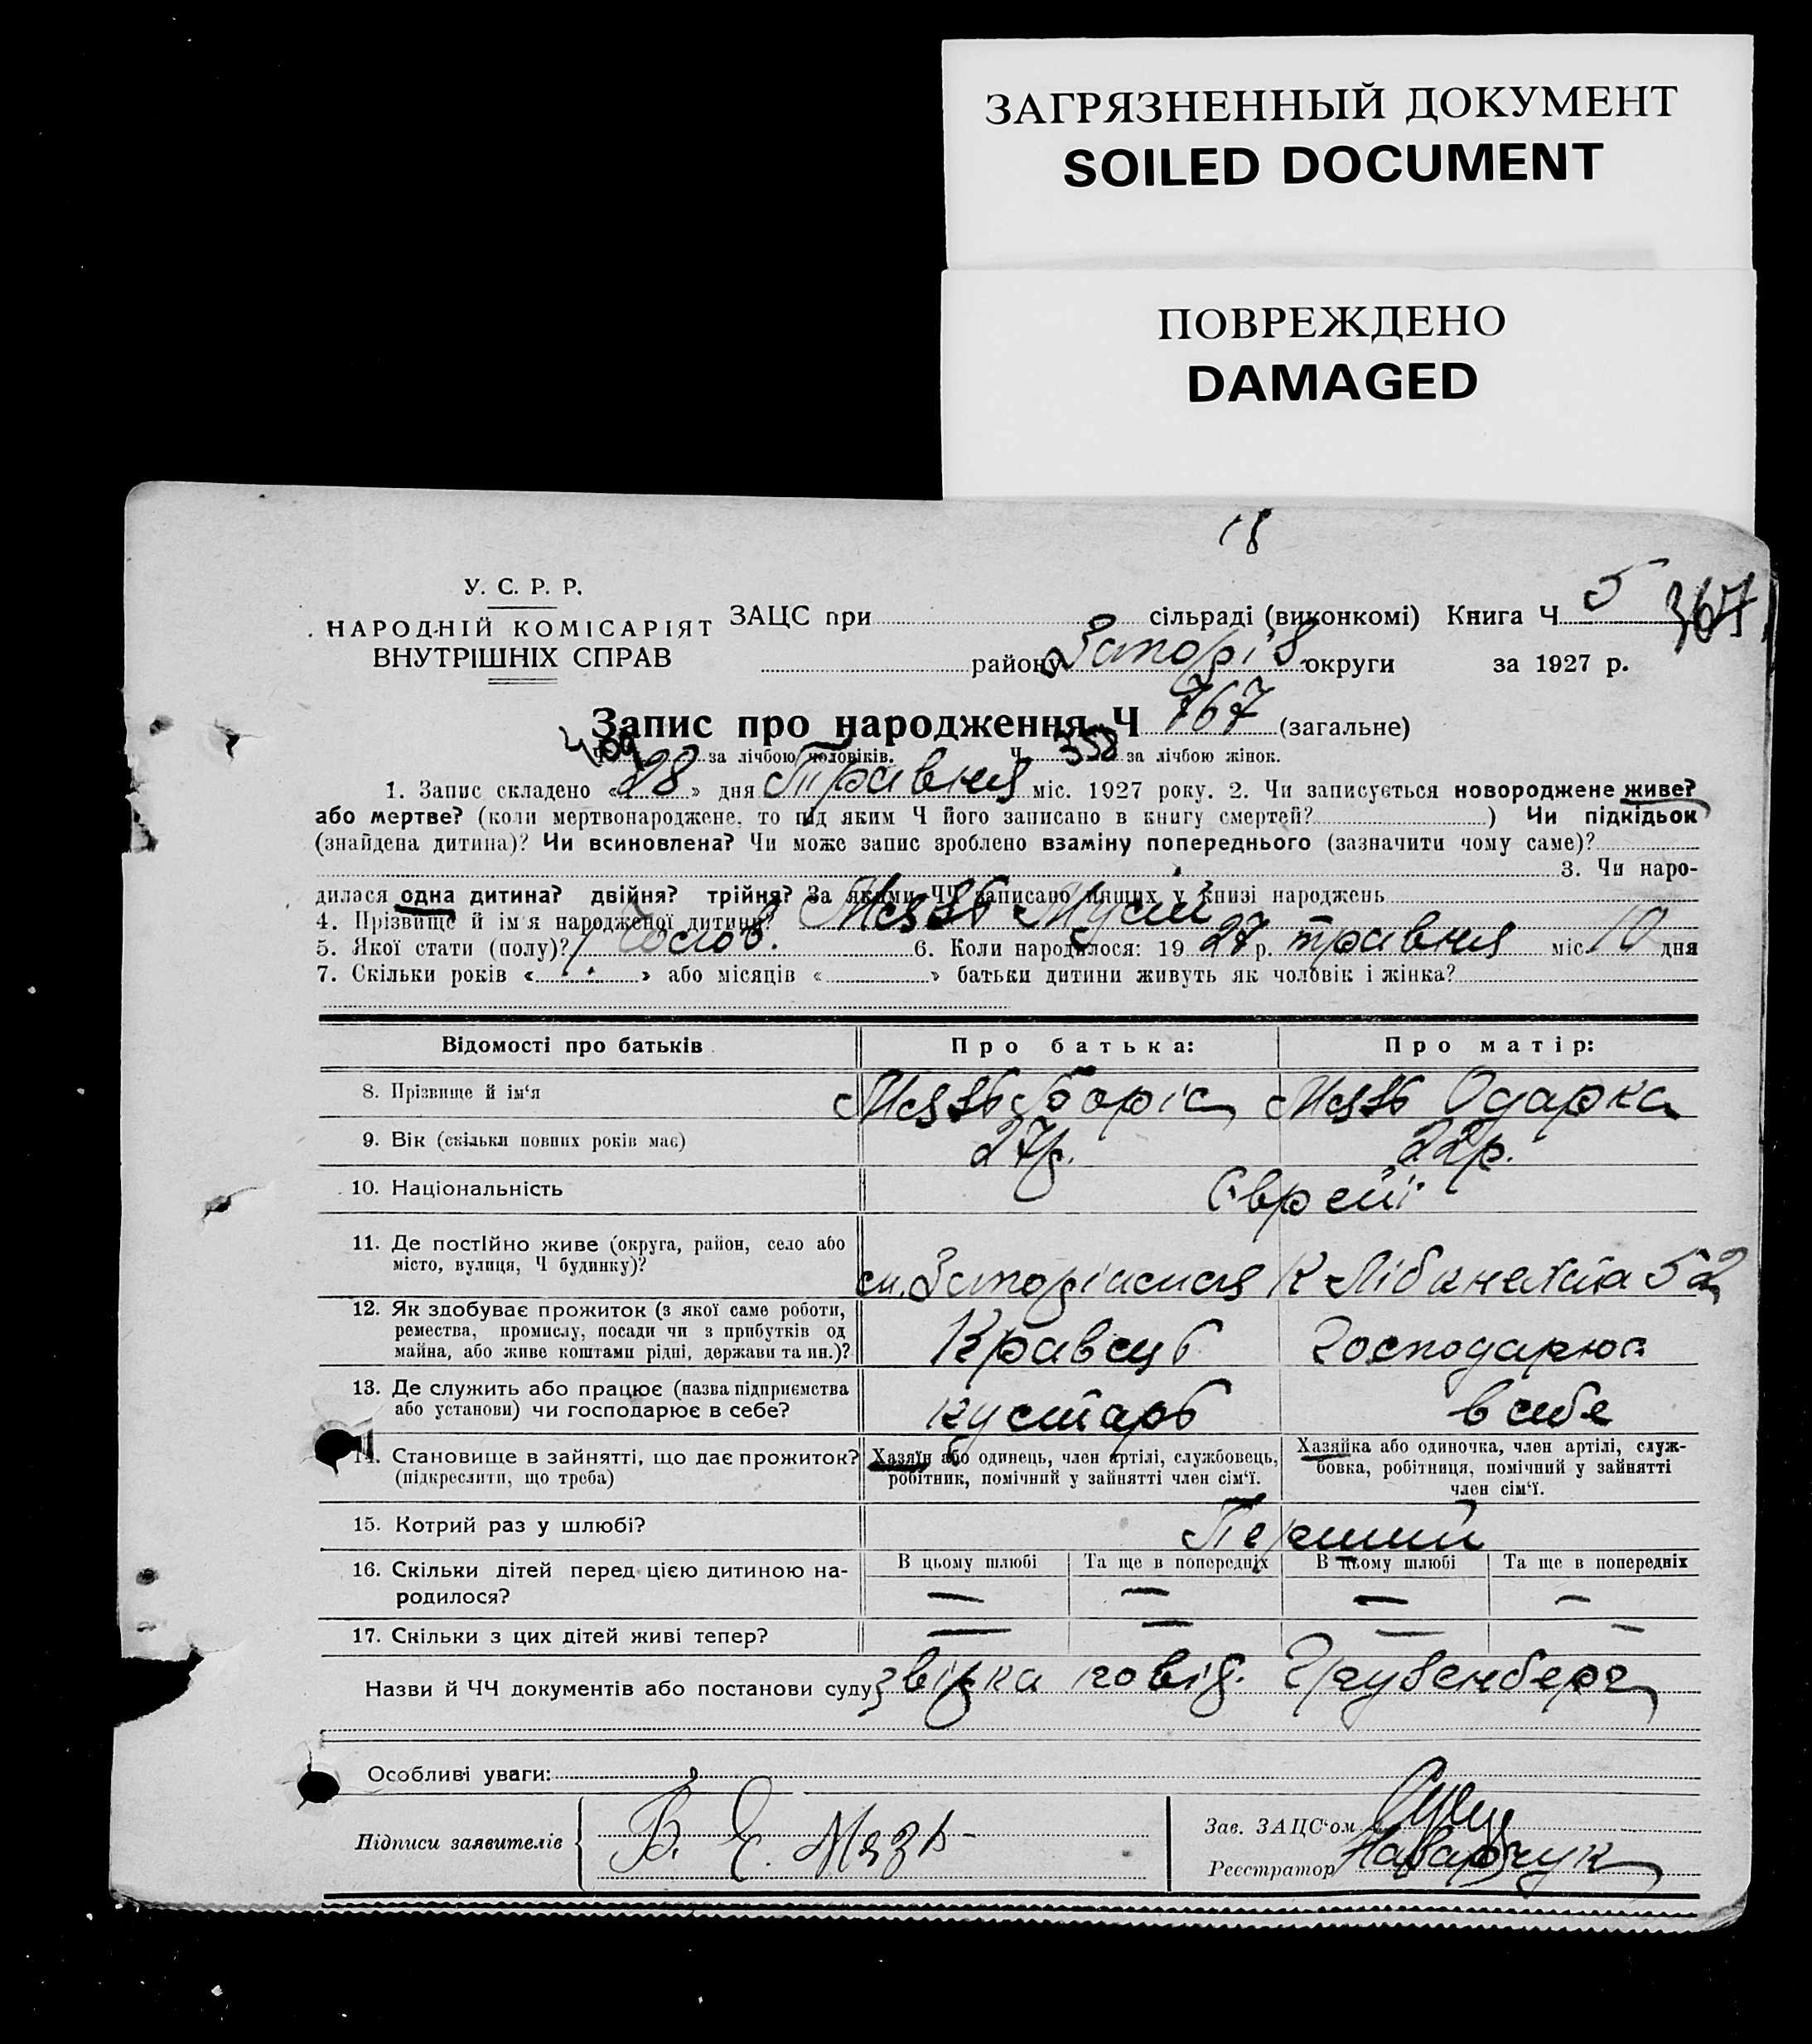 ЗАГРЯЗНЕННЫЙ ДОКУМЕНТ
SOILED DOCUMENT
ПОВРЕЖДЕНО
DAMAGED
18
У. С. Р. Р.
НАРОДНІЙ КОМІСАРІЯТ
ВНУТРІШНІХ СПРАВ
ЗАЦС при сільраді (виконкомі) Книга Ч 5
367
району Запоріз округи за 1927 р.
Запис про народження Ч 767 (загальне)
Ч 409 за лічбою чоловіків. Ч 358 за лічбою жінок.
1. Запис складено «28» дня Травня міс. 1927 року. 2. Чи записується новороджене живе?
або мертве? (коли мертвонароджене, то під яким Ч його записано в книгу смертей? ) Чи підкідьок
(знайдена дитина)? Чи всиновлена? Чи може запис зроблено взаміну попереднього (зазначити чому саме)?
3. Чи наро-
дилася одна дитина? двійня? трійня? За якими ЧЧ записано инших у книзі народжень
4. Прізвище й ім'я народженої дитини? Мязь Мусій
5. Якої стати (полу)? Чолов. 6. Коли народилося: 19 27 р. травня міс. 10 дня
7. Скільки років « » або місяців « » батьки дитини живуть як чоловік і жінка?
Відомості про батьків Про батька: Про матір:
8. Прізвище й ім'я Мязь Боріс Мязь Одарка
9. Вік (скільки повних років має) 27р. 22р.
10. Національність Євреї
11. Де постійно живе (округа, район, село або
місто, вулиця, Ч будинку)? К Лібкнехта 52
12. Як здобуває прожиток (з якої саме роботи,
ремества, промислу, посади чи з прибутків од
майна, або живе коштами рідні, держави та ин.)? Кравець Господарює
13. Де служить або працює (назва підприємства
або установи) чи господарює в себе? кустарь в себе
14. Становище в зайнятті, що дає прожиток?
(підкреслити, що треба)
Хазяїн або одинець, член артілі, службовець,
робітник, помічний у зайнятті член сім'ї.
Хазяйка або одиночка, член артілі, служ-
бовка, робітниця, помічний у зайнятті
член сім'ї.
15. Котрий раз у шлюбі? Перший
16. Скільки дітей перед цією дитиною на-
родилося?
В цьому шлюбі Та ще в попередніх В цьому шлюбі Та ще в попередніх
— — — —
17. Скільки з цих дітей живі тепер? — — — —
Назви й ЧЧ документів або постанови суду
Особливі уваги:
Підписи заявителів Б. Е. Мязь
Зав. ЗАЦС'ом
Реєстратор